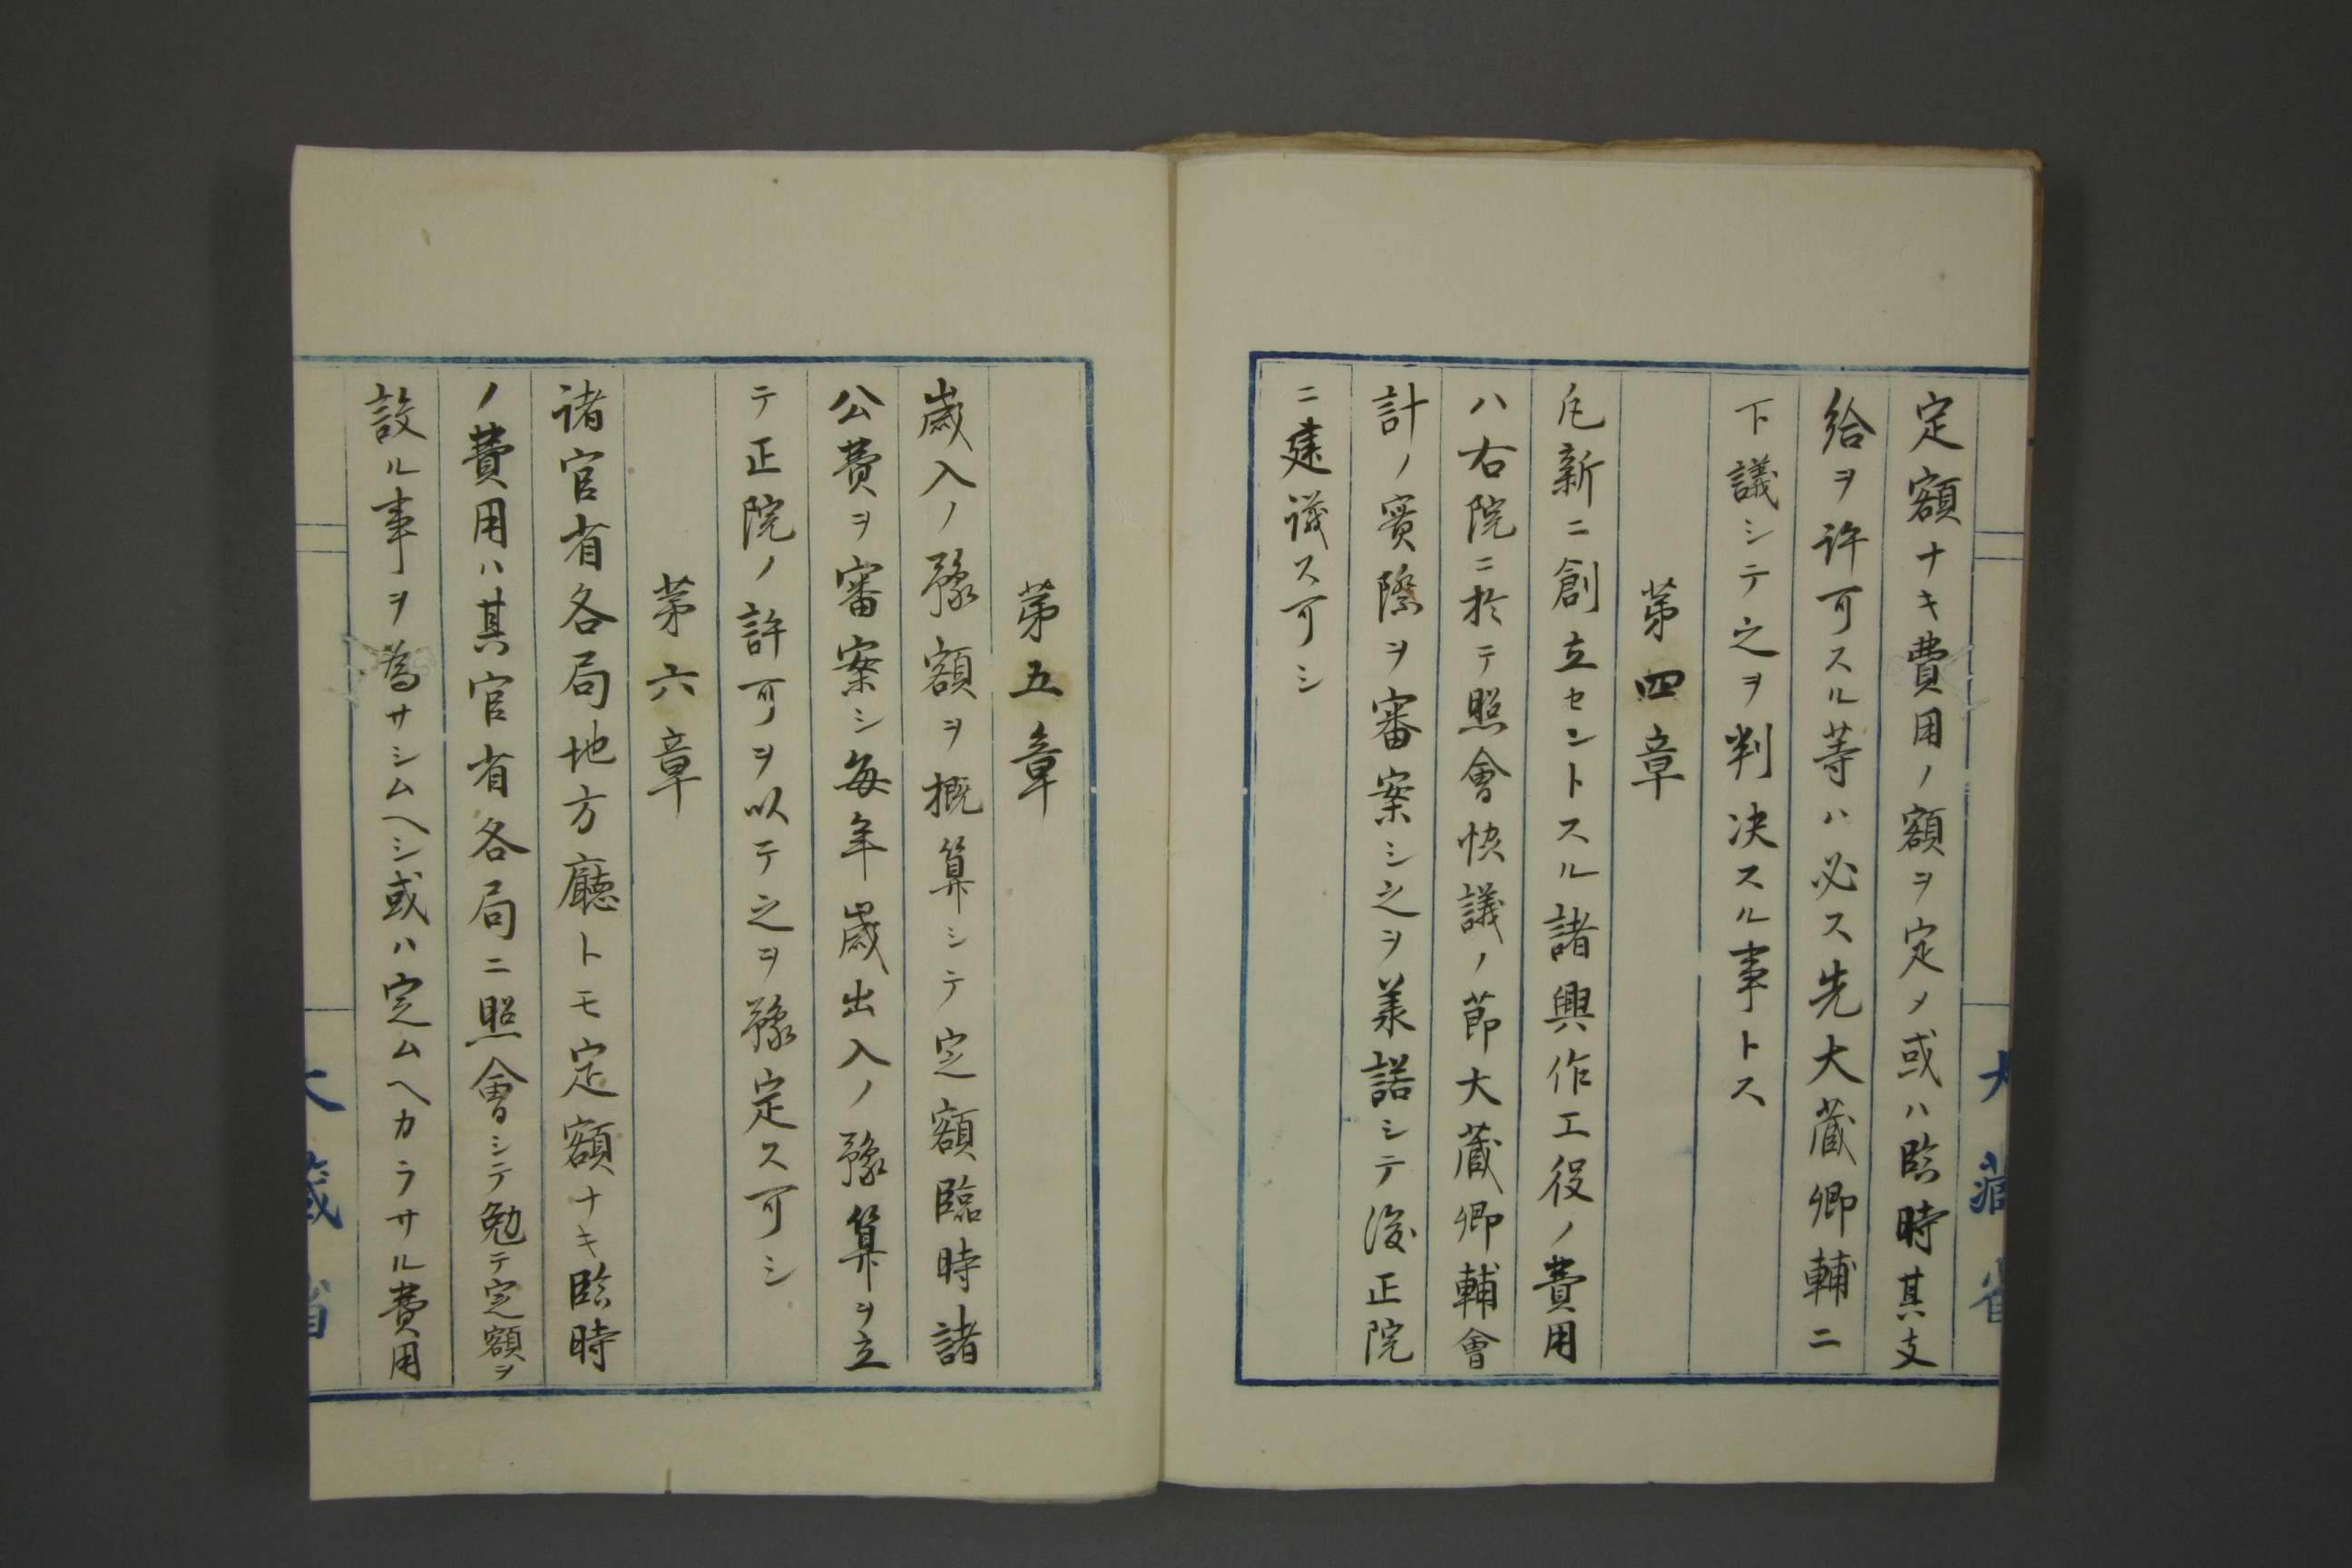 定額ナキ費用ノ額ヲ定メ或ハ臨時其支
給ヲ許可スル等ハ必ス先大蔵卿輔ニ
下議シテ之ヲ判决スル事トス
第四章
凡新ニ創立セントスル諸興作工役ノ費用
ハ右院ニ於テ照會快議ノ節大蔵卿輔會
計ノ實際ヲ審案シ之ヲ兼諾シテ後正院
ニ建議ス可シ
大藏省
第五章
歳入ノ豫額ヲ概算シテ定額臨時諸
公費ヲ審案シ毎年歳出入ノ豫算ヲ立
テ正院ノ許可ヲ以テ之ヲ豫定ス可シ
第六章
諸官省各局地方廳トモ定額ナキ臨時
ノ費用ハ其官省各局ニ照會シテ勉テ定額ヲ
設ル事ヲ為サシムヘシ或ハ定ムヘカラサル費用
大藏省